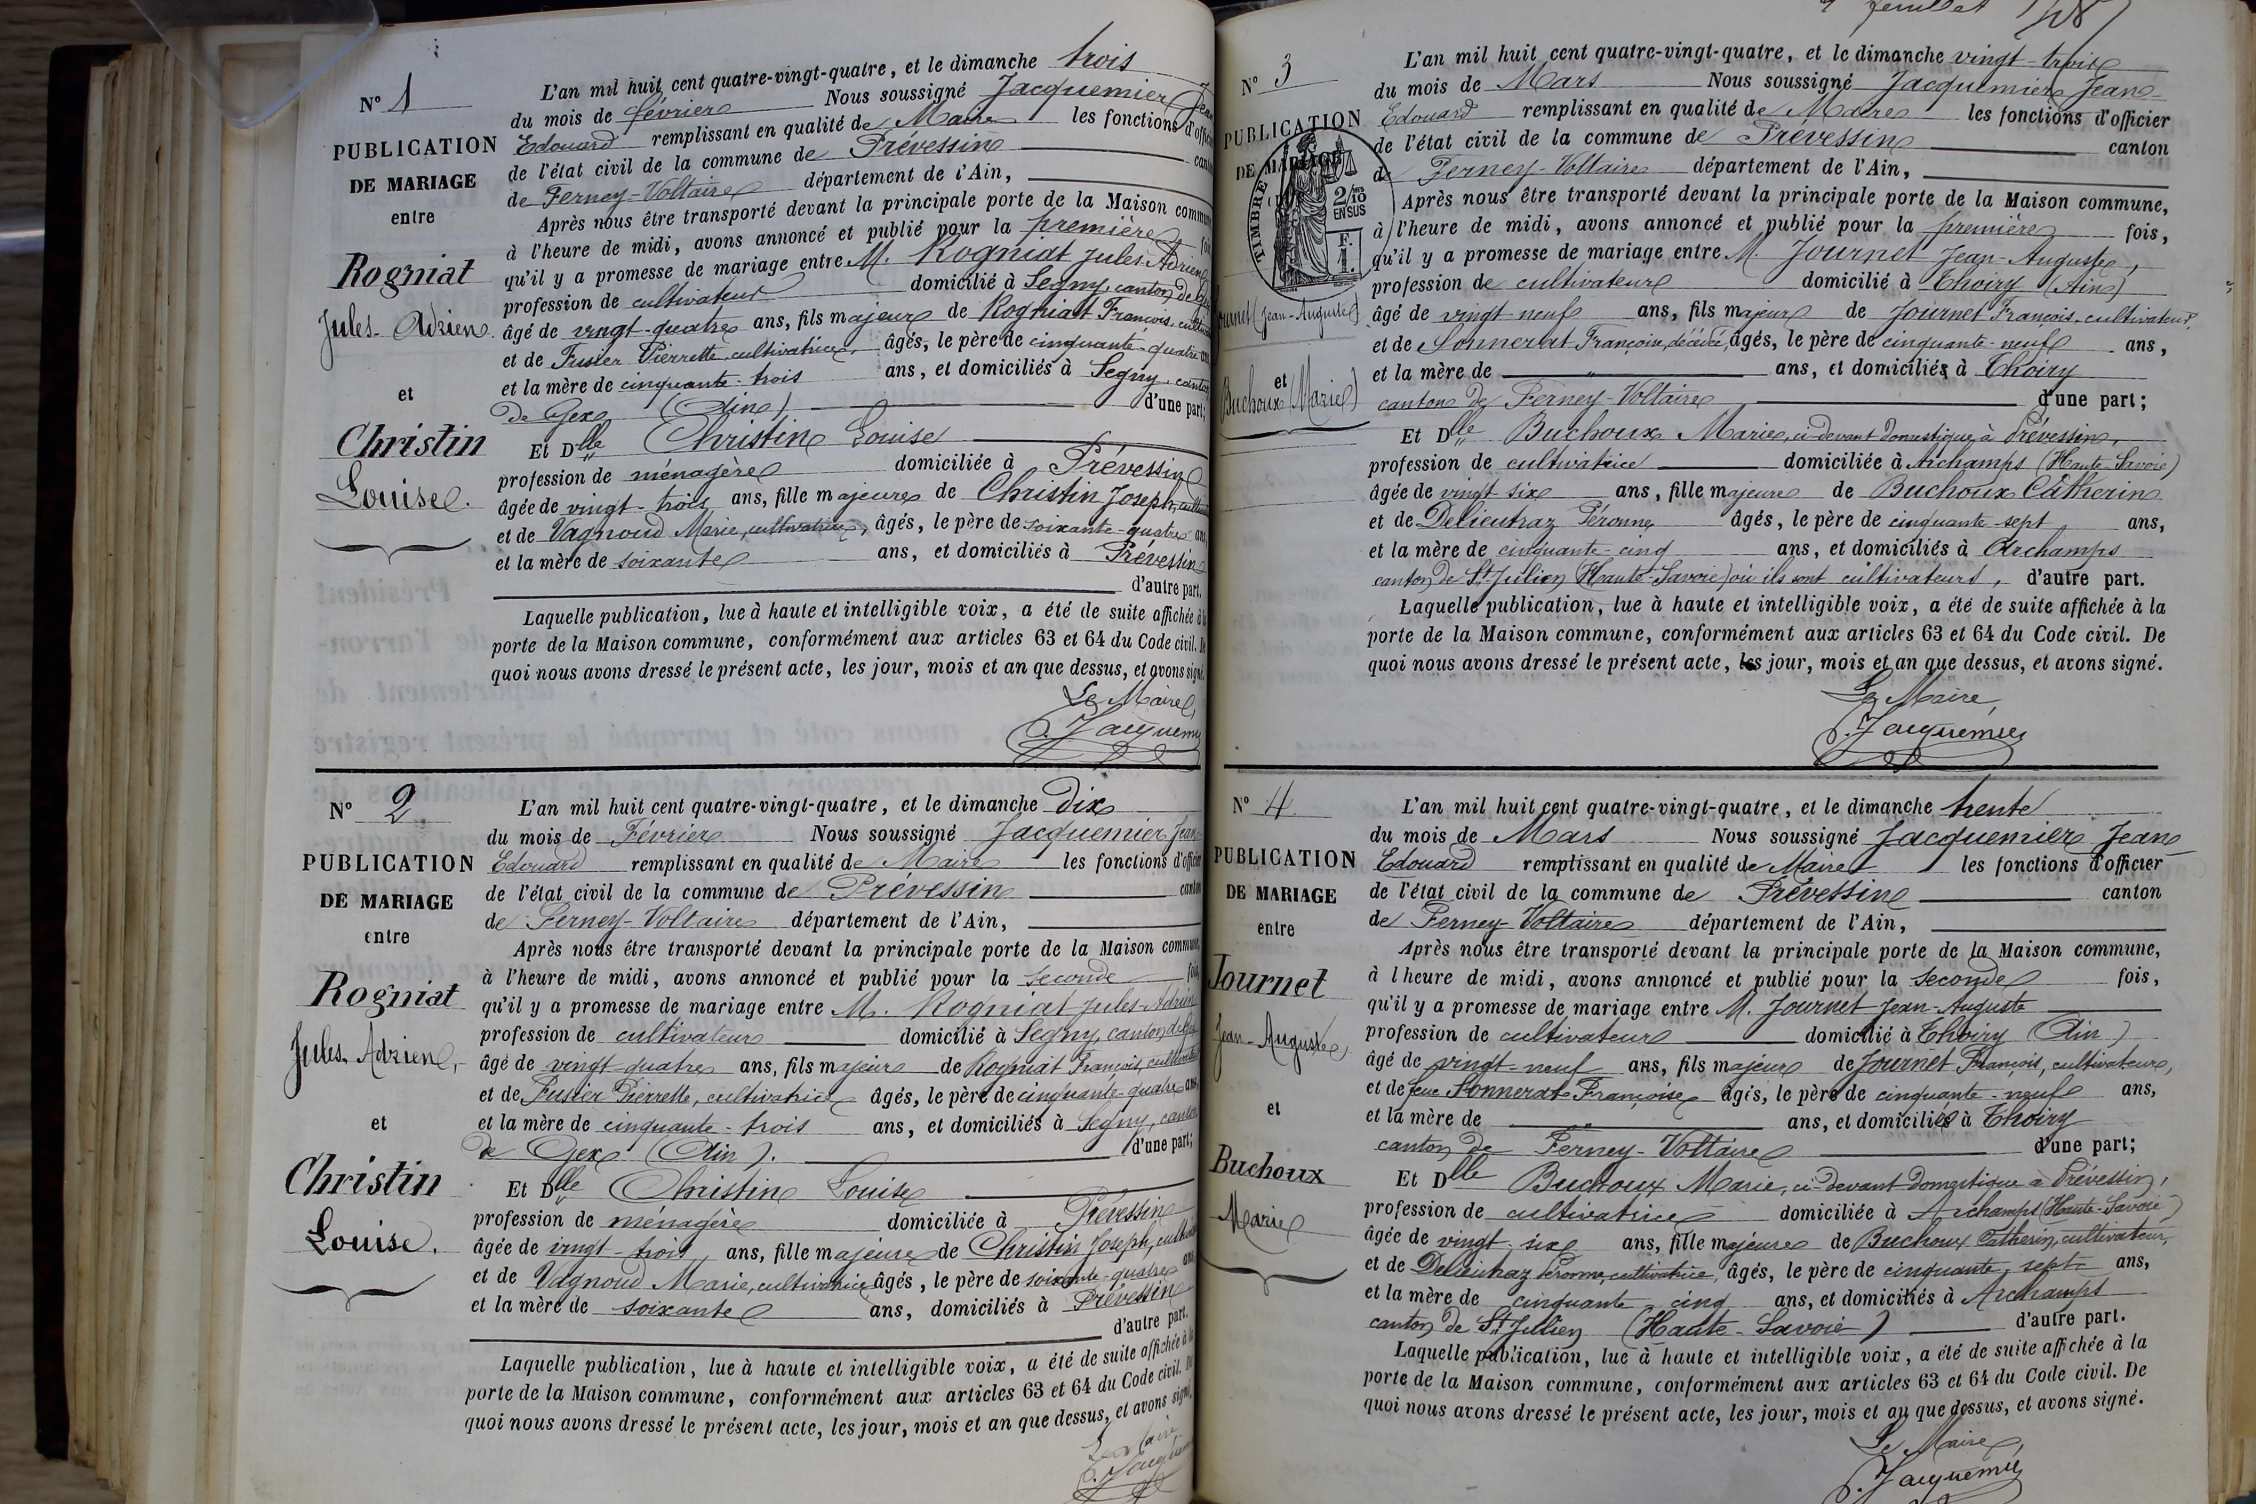 N° 1
PUBLICATION
DE MARIAGE
entre
Rogniat
Jules-Adrien
et
Christin
Louise.
L'an mil huit cent quatre-vingt-quatre, et le dimanche trois
du mois de février Nous soussigné Jacquemier Jean
Edouard remplissant en qualité de Maire les fonctions d'officier
de l'état civil de la commune de Prévessin canton
de Ferney-Voltaire département de l'Ain,
Après nous être transporté devant la principale porte de la Maison commune
à l'heure de midi, avons annoncé et publié pour la première fois
qu'il y a promesse de mariage entre M. Rogniat Jules-Adrien
profession de cultivateur domicilié à Segny, canton de Gex
âgé de vingt-quatre ans, fils majeur de Rogniat François, cultivateur
et de Fusier Pierrette, cultivatrice, âgés, le père de cinquante-quatre ans
et la mère de cinquante-trois ans, et domiciliés à Segny, canton
de Gex (Ain) d'une part;
Et Dlle Christin Louise
profession de ménagère domiciliée à Prévessin
âgée de vingt-trois ans, fille majeure de Christin Joseph,
et de Vagnoud Marie, cultivatrice, âgés, le père de soixante-quatre ans,
et la mère de soixante ans, et domiciliés à Prévessin
d'autre part.
Laquelle publication, lue à haute et intelligible voix, a été de suite affichée à la
porte de la Maison commune, conformément aux articles 63 et 64 du Code civil. De
quoi nous avons dressé le présent acte, les jour, mois et an que dessus, et avons signé.
Le Maire,
Jacquemier
N° 2
PUBLICATION
DE MARIAGE
entre
Rogniat
Jules-Adrien,
et
Christin
Louise.
L'an mil huit cent quatre-vingt-quatre, et le dimanche dix
du mois de Février Nous soussigné Jacquemier Jean
Edouard remplissant en qualité de Maire les fonctions d'officier
de l'état civil de la commune de Prévessin canton
de Ferney-Voltaire département de l'Ain,
Après nous être transporté devant la principale porte de la Maison commune,
à l'heure de midi, avons annoncé et publié pour la seconde fois,
qu'il y a promesse de mariage entre M. Rogniat Jules-Adrien
profession de cultivateur domicilié à Segny, canton de Gex
âgé de vingt-quatre ans, fils majeur de Rogniat François, cultivateur
et de Fusier Pierrette, cultivatrice âgés, le père de cinquante-quatre ans,
et la mère de cinquante-trois ans, et domiciliés à Segny, canton
de Gex (Ain). d'une part;
Et Dlle Christin Louise
profession de ménagère domiciliée à Prévessin
âgée de vingt-trois ans, fille majeure de Christin Joseph, cultivateur
et de Vagnoud Marie, cultivatrice âgés, le père de soixante-quatre ans,
et la mère de soixante ans, domiciliés à Prévessin
d'autre part.
Laquelle publication, lue à haute et intelligible voix, a été de suite affichée à la
porte de la Maison commune, conformément aux articles 63 et 64 du Code civil. De
quoi nous avons dressé le présent acte, les jour, mois et an que dessus, et avons signé.
Le Maire
Jacquemier
feuillet
N° 3
PUBLICATION
DE MARIAGE
TIMBRE
2/10
EN SUS
F.
1.
Journet (Jean-Auguste)
et
Buchoux (Marie)
L'an mil huit cent quatre-vingt-quatre, et le dimanche vingt-trois
du mois de Mars Nous soussigné Jacquemier Jean
Edouard remplissant en qualité de Maire les fonctions d'officier
de l'état civil de la commune de Prévessin canton
de Ferney-Voltaire département de l'Ain,
Après nous être transporté devant la principale porte de la Maison commune,
à l'heure de midi, avons annoncé et publié pour la première fois,
qu'il y a promesse de mariage entre M. Journet Jean-Auguste,
profession de cultivateur domicilié à Thoiry (Ain)
âgé de vingt neuf ans, fils majeur de Journet François, cultivateur,
et de Sonnerat Françoise, décédée, âgés, le père de cinquante-neuf ans,
et la mère de " ans, et domiciliés à Thoiry
canton de Ferney-Voltaire d'une part;
Et Dlle Buchoux Marie, ci-devant domestique à Prévessin,
profession de cultivatrice domiciliée à Archamps (Haute-Savoie)
âgée de vingt six ans, fille majeure de Buchoux Catherin
et de Delieutraz Péronne âgés, le père de cinquante-sept ans,
et la mère de cinquante-cinq ans, et domiciliés à Archamps
canton de St Julien (Haute-Savoie) où ils sont cultivateurs, d'autre part.
Laquelle publication, lue à haute et intelligible voix, a été de suite affichée à la
porte de la Maison commune, conformément aux articles 63 et 64 du Code civil. De
quoi nous avons dressé le présent acte, les jour, mois et an que dessus, et avons signé.
Le Maire,
Jacquemier
N° 4
PUBLICATION
DE MARIAGE
entre
Journet
Jean-Auguste,
et
Buchoux
Marie
L'an mil huit cent quatre-vingt-quatre, et le dimanche trente
du mois de Mars Nous soussigné Jacquemier Jean
Edouard remplissant en qualité de Maire les fonctions d'officier
de l'état civil de la commune de Prévessin canton
de Ferney-Voltaire département de l'Ain,
Après nous être transporté devant la principale porte de la Maison commune,
à l'heure de midi, avons annoncé et publié pour la seconde fois,
qu'il y a promesse de mariage entre M. Journet Jean-Auguste
profession de cultivateur domicilié à Thoiry (Ain)
âgé de vingt-neuf ans, fils majeur de Journet François, cultivateur,
et de feue Sonnerat Françoise âgés, le père de cinquante-neuf ans,
et la mère de " ans, et domiciliés à Thoiry
canton de Ferney-Voltaire d'une part;
Et Dlle Buchoux Marie, ci-devant domestique à Prévessin,
profession de cultivatrice domiciliée à Archamps (Haute-Savoie)
âgée de vingt-six ans, fille majeure de Buchoux Catherin, cultivateur,
et de Delieutraz Péronne, cultivatrice, âgés, le père de cinquante-sept ans,
et la mère de cinquante cinq ans, et domiciliés à Archamps
canton de St Julien (Haute-Savoie) d'autre part.
Laquelle publication, lue à haute et intelligible voix, a été de suite affichée à la
porte de la Maison commune, conformément aux articles 63 et 64 du Code civil. De
quoi nous avons dressé le présent acte, les jour, mois et an que dessus, et avons signé.
Le Maire,
Jacquemier